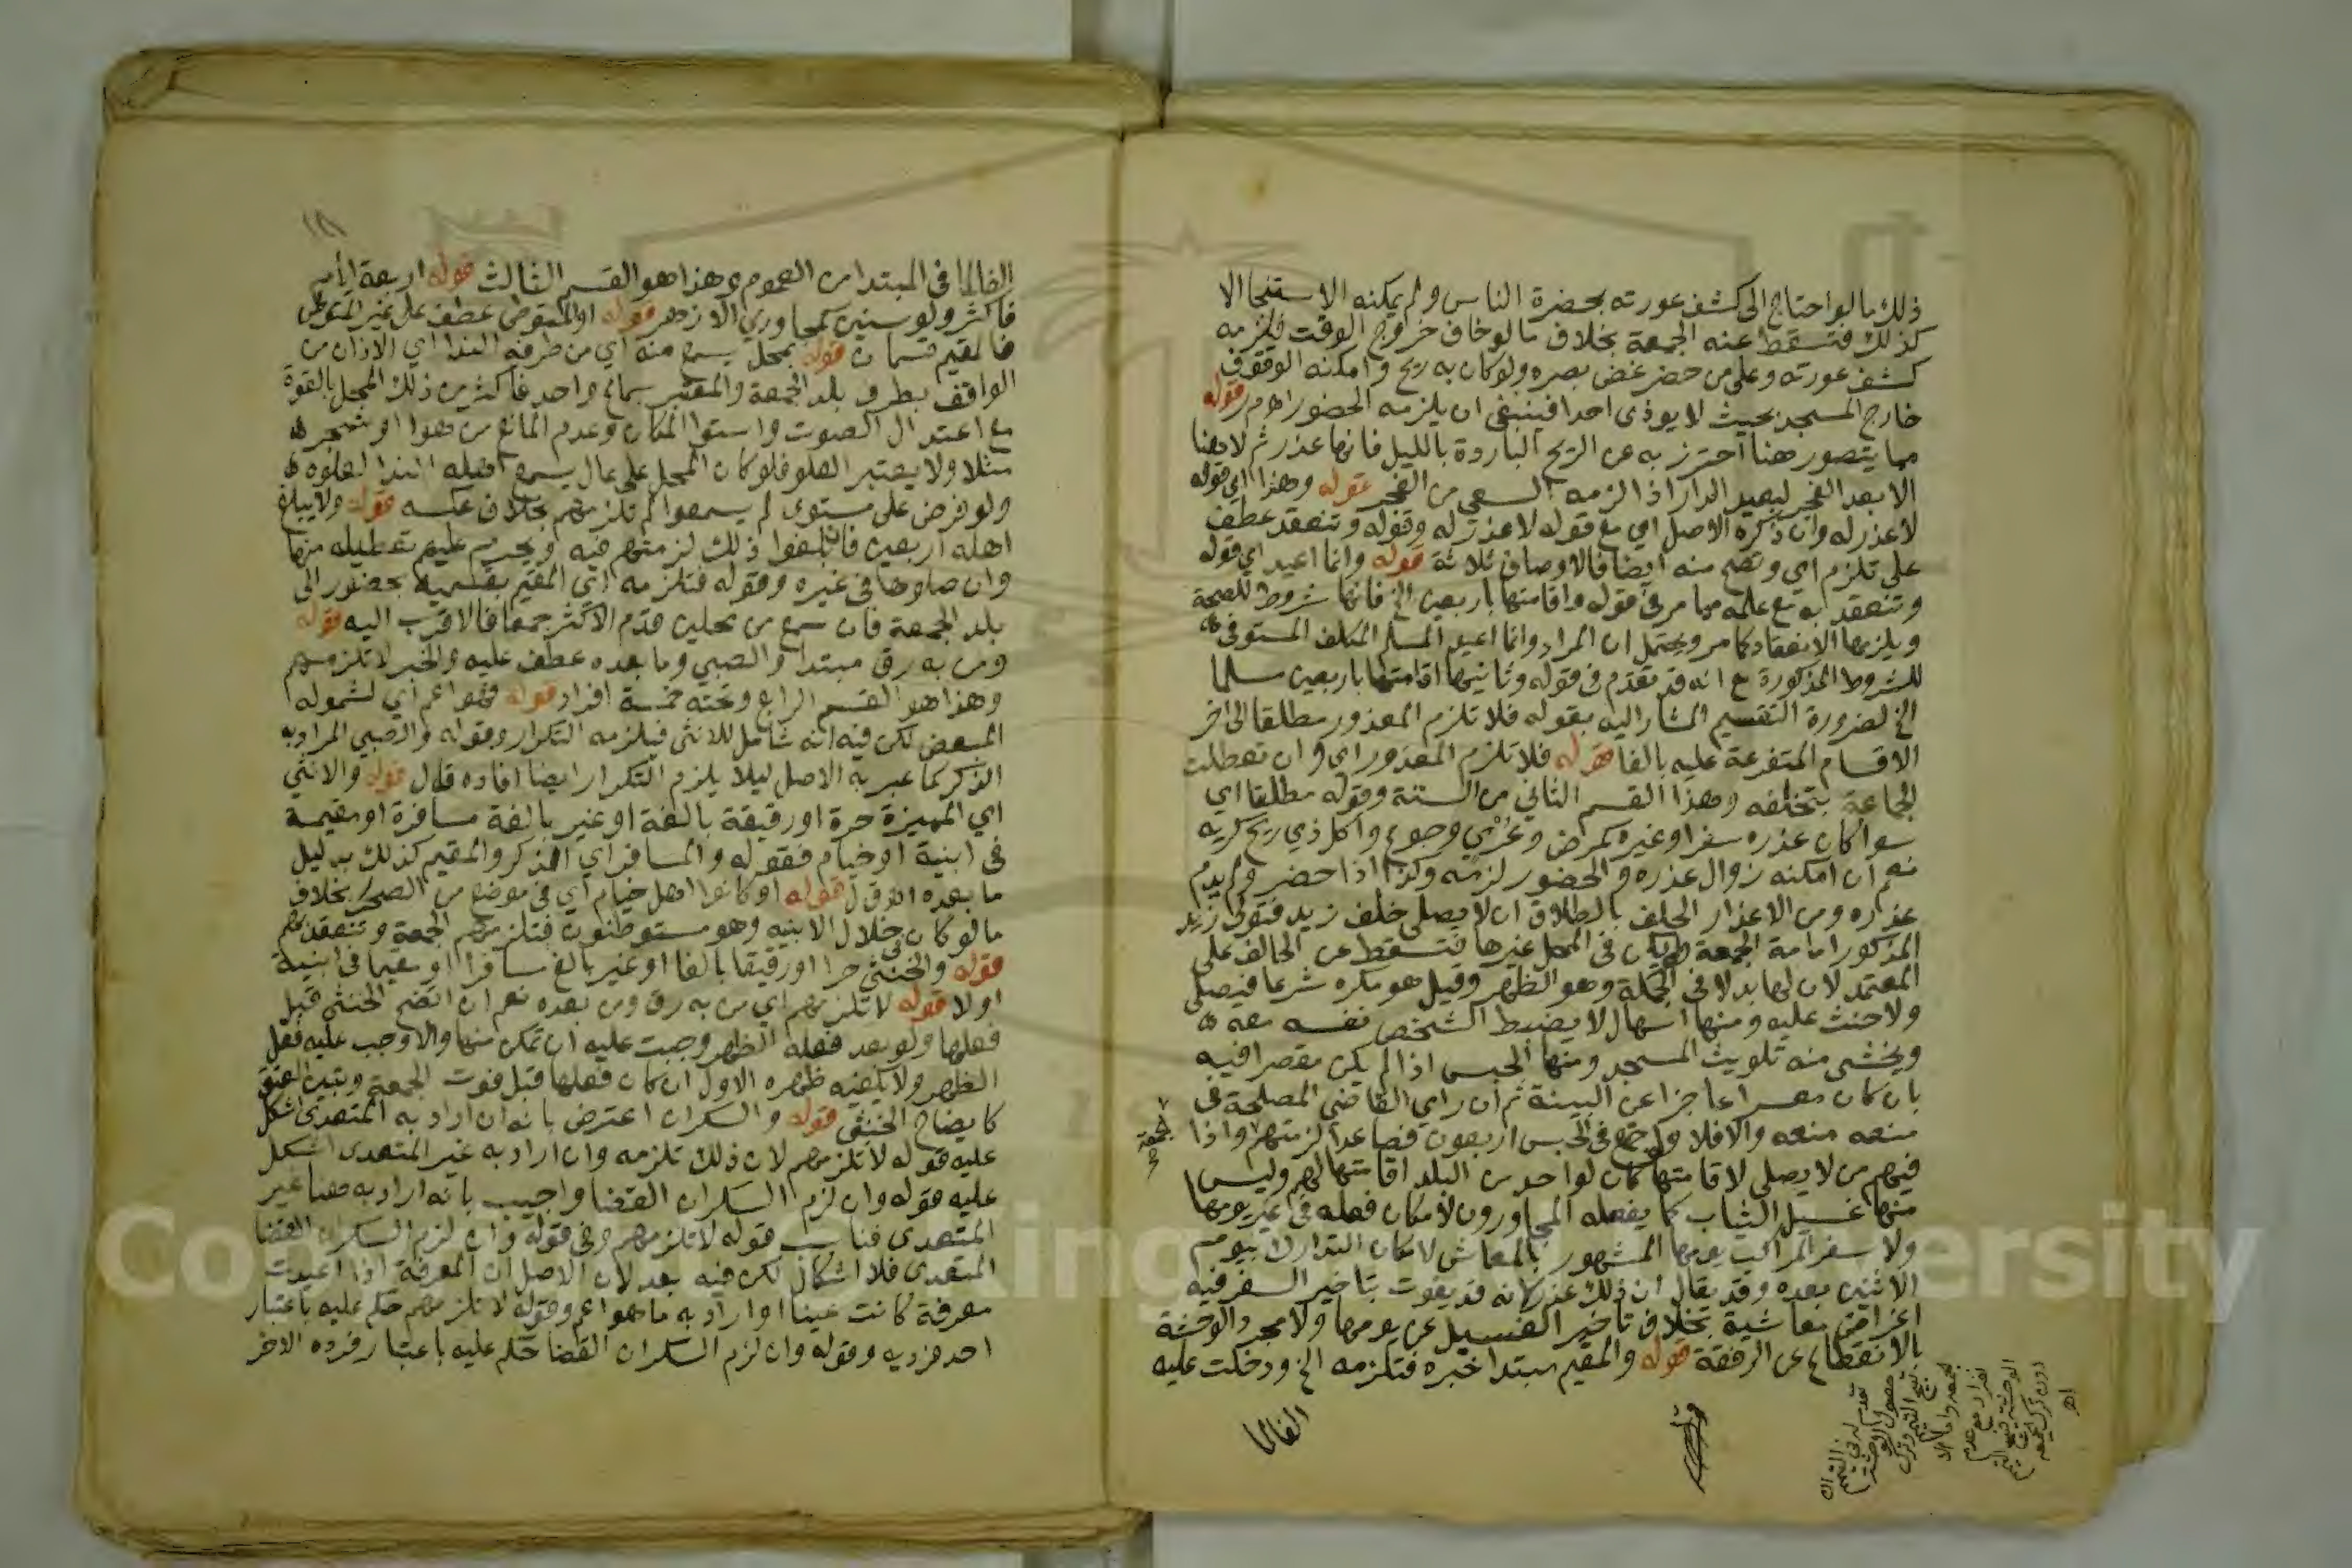 ذلك ما لو احتاج الى كشف عورته بحضرة الناس ولم يمكنه الاستنجا الا
كذلك فتسقط عنه الجمعة بخلاف ما لو خاف خروج الوقت فيلزمه
كشف عورته وعلى من حضر غض بصره ولو كان به ريح وامكنه الوقوف
خارج المسجد بحيث لا يوذى احدا فينبغي ان يلزمه الحضور اهم ر قوله
مما يتصور هنا احترز به عن الريح الباردة بالليل فانها عذر ثم لا هنا
الا بعد الفجر لبعيد الدار اذ الزمه السعي من الفجر قوله وهذا اي قوله
لا عذر له وان ذكره الاصل اي مع قوله لا عذر له وقوله وتنعقد عطف
على تلزم اي وتصح منه ايضا فالاوصاف ثلاثة قوله وانما اعيد اي قوله
وتنعقد به مع علمه مما مر في قوله واقامتها باربعين الخ فانها شروط للصحة
ويلزمها الانعقاد كما مر ويحتمل ان المراد وانما اعيد المسلم المكلف المستوفى
للشروط المذكورة مع انه قد تقدم في قوله وثانيها اقامتها باربعين مسلما
الخ لضرورة التقسيم المشار اليه بقوله فلا تلزم المعذور مطلقا الى اخر
الاقسام المتفرعة عليه بالفا قوله فلا تلزم المعذور اي وان تعطلت
الجماعة بتخلفه وهذا القسم الثاني من الستة وقوله مطلقا اي
سوا كان عذره سفرا وغيره كمرض وعري وجوع واكل ذي ريح كريه
نعم ان امكنه زوال عذره والحضور لزمه وكذا اذا حضر ولم يدم
عذره ومن الاعذار الحلف بالطلاق ان لا يصلى خلف زيد فتولى زيد
المذكور امامة الجمعة ولم يكن في المحل غيرها فتسقط عن الحالف على
المعتمد لان لها بدلا في الجملة وهو الظهر وقيل هو مكره شرعا فيصلى
ولا حنث عليه ومنها اسهال لا يضبط الشخص نفسه معه
ويخشى منه تلويث المسجد ومنها الحبس اذا لم يكن مقصرا فيه
بان كان معسرا عاجزا عن البينة ثم ان راي القاضي المصلحة في
منعه منعه والا فلا ولو اجتمع في الحبس اربعون فصاعدا لزمتهم واذا
الجمعة
فيهم من لا يصلي لاقامتها كان لواحد من البلد اقامتها لهم وليس
منها غسيل الثياب كما يفعله المجاورون لامكان فعله في غير يومها
ولا سفر المراكب يومها المشهور بالمعاش لامكان التدارك بيوم
الاثنين بعده وقد يقال ان ذلك عذر لانه قد يفوت بتاخير السفر فيه
اغراض معاشية بخلاف تاخير الغسيل عن يومها ولا مجرد الوحشة
بالانقطاع عن الرفقة قوله والمقيم مبتدا خبره فتلزمه الخ ودخلت عليه
الفا لما
الفا لما في المبتدا من العموم وهذا هو القسم الثالث قوله اربعة ايام
فاكثر ولو سنين كمجاوري الازهر قوله او المتوطن عطف على غير المتوطن
فالمقيم قسمان قوله بمحل يسمع منه اي من طرفه الندا اي الاذان من
الواقف بطرف بلد الجمعة والمعتبر سماع واحد فاكثر من ذلك المحل بالقوة
مع اعتدال الصوت واستوا المكان وعدم المانع من هوا او شجر
مثلا ولا يعتبر العلو فلو كان المحل على عال يسمع اهله الندا لعلوه
ولو فرض على مستوى لم يسمعوا لم تلزمهم بخلاف عكسه قوله ولا يبلغ
اهله اربعين فان بلغوا ذلك لزمتهم فيه ويحرم عليهم تعطيله منها
وان صلوها في غيره وقوله فتلزمه اي المقيم بقسميه بحضور الى
بلد الجمعة فان سمع من محلين قدم الاكثر جمعا فالاقرب اليه قوله
ومن به رق مبتدا والصبي وما بعده عطف عليه والخبر لا تلزمهم
وهذا هو القسم الرابع وتحته خمسة افراد قوله فهو اعم اي لشموله
المبعض لكن فيه انه شامل للانثى فيلزمه التكرار وقوله والصبي المراد به
الذكر كما عبر به الاصل ليلا يلزم التكرار ايضا افاده ق ل قوله والانثى
اي المميزة حرة او رقيقة بالغة او غير بالغة مسافرة او مقيمة
في ابنية او خيام فقوله والمسافر اي الذكر والمقيم كذلك بدليل
ما بعده اهـ ق ل قوله او كانوا اهل خيام اي في موضع من الصحرا بخلاف
ما لو كان في خلال الابنيه وهو مستوطنون فتلزمهم الجمعة وتنعقد بهم
قوله والخنثى حرا او رقيقا بالغا او غير بالغ مسافرا او مقيما في ابنية
اولا قوله لا تلزمهم اي من به رق ومن بعده نعم ان اتضح الخنثى قبل
فعلها ولو بعد فعله الظهر وجبت عليه ان تمكن منها والا وجب عليه فعل
الظهر ولا يكفيه ظهره الاول ان كان فعلها قبل فوت الجمعة وتبين العتق
كايضاح الخنثى قوله والسكران اعترض بانه ان اراد به المتعدى اشكل
عليه قوله لا تلزمهم لان ذلك تلزمه وان اراد به غير المتعدى اشكل
عليه قوله وان لزم السكران القضا واجيب بانه اراد به هنا غير
المتعدى فناسب قوله لا تلزمهم وفي قوله وان لزم السكران القضا
المتعدى فلا اشكال لكن فيه بعد لان الاصل ان المعرفة اذا اعيدت
معرفة كانت عينا او اراد به ما هو اعم وقوله لا تلزمهم حكم عليه باعتبار
احد فرديه وقوله وان لزم السكران القضا حكم عليه باعتبار فرده الاخر